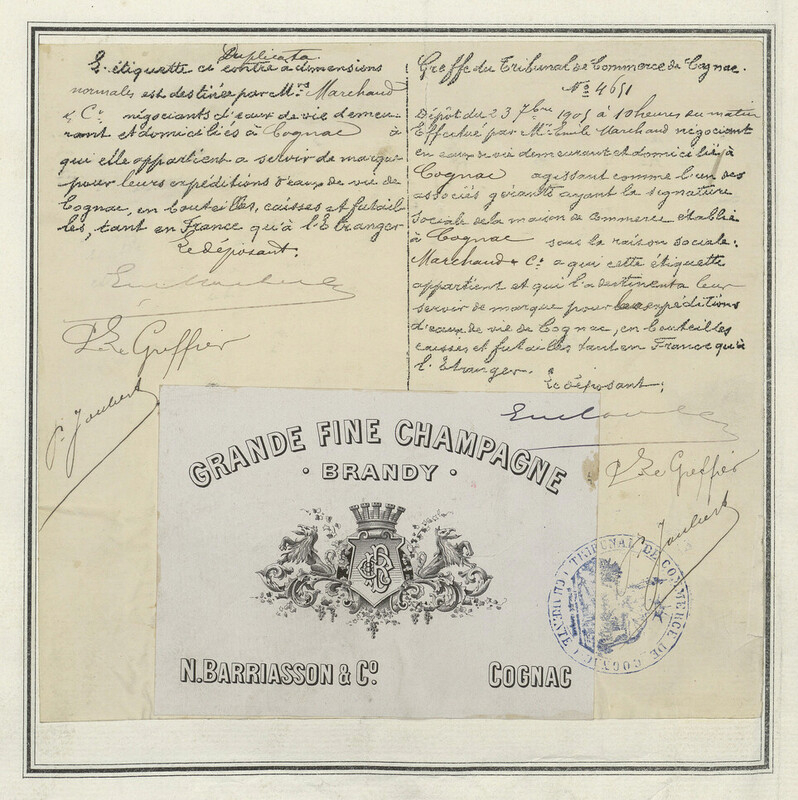 Duplicata
L'étiquette ci contre a dimensions
normales est destinée par Mrs Marchaud
& Cie négociants d'eaux de vie demeu-
rant et domiciliés à Cognac à
qui elle appartient a servir de marque
pour leurs expéditions d'eaux de vie de
Cognac, en bouteilles, caisses et futail-
les, tant en France qu'à l'Etranger
Le déposant.
P. Le Greffier
P. Joubert
Greffe du Tribunal de Commerce de Cognac.
No 4651
Dépôt du 23 7bre 1905 à 10 heures du matin
Effectué par Mr Emile Marchaud négociant
en eaux de vie demeurant et domicilié à
Cognac agissant comme l'un des
associés gérants ayant la signature
sociale de la maison de Commerce établie
à Cognac sous la raison sociale:
Marchaud & Cie a qui cette étiquette
appartient et qui l'a destinent a leur
servir de marque pour les expéditions
d'eaux de vie de Cognac, en bouteilles
caisses et futailles tant en France qu'à
l'Etranger.
Le déposant;
P. Le Greffier
P. Joubert
GRANDE FINE CHAMPAGNE
· BRANDY ·
N. BARRIASSON & Co
COGNAC
TRIBUNAL DE COMMERCE DE COGNAC (CHARENTE)